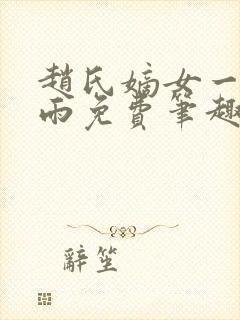 趙氏嫡女一
雨免費筆趣
辭笙